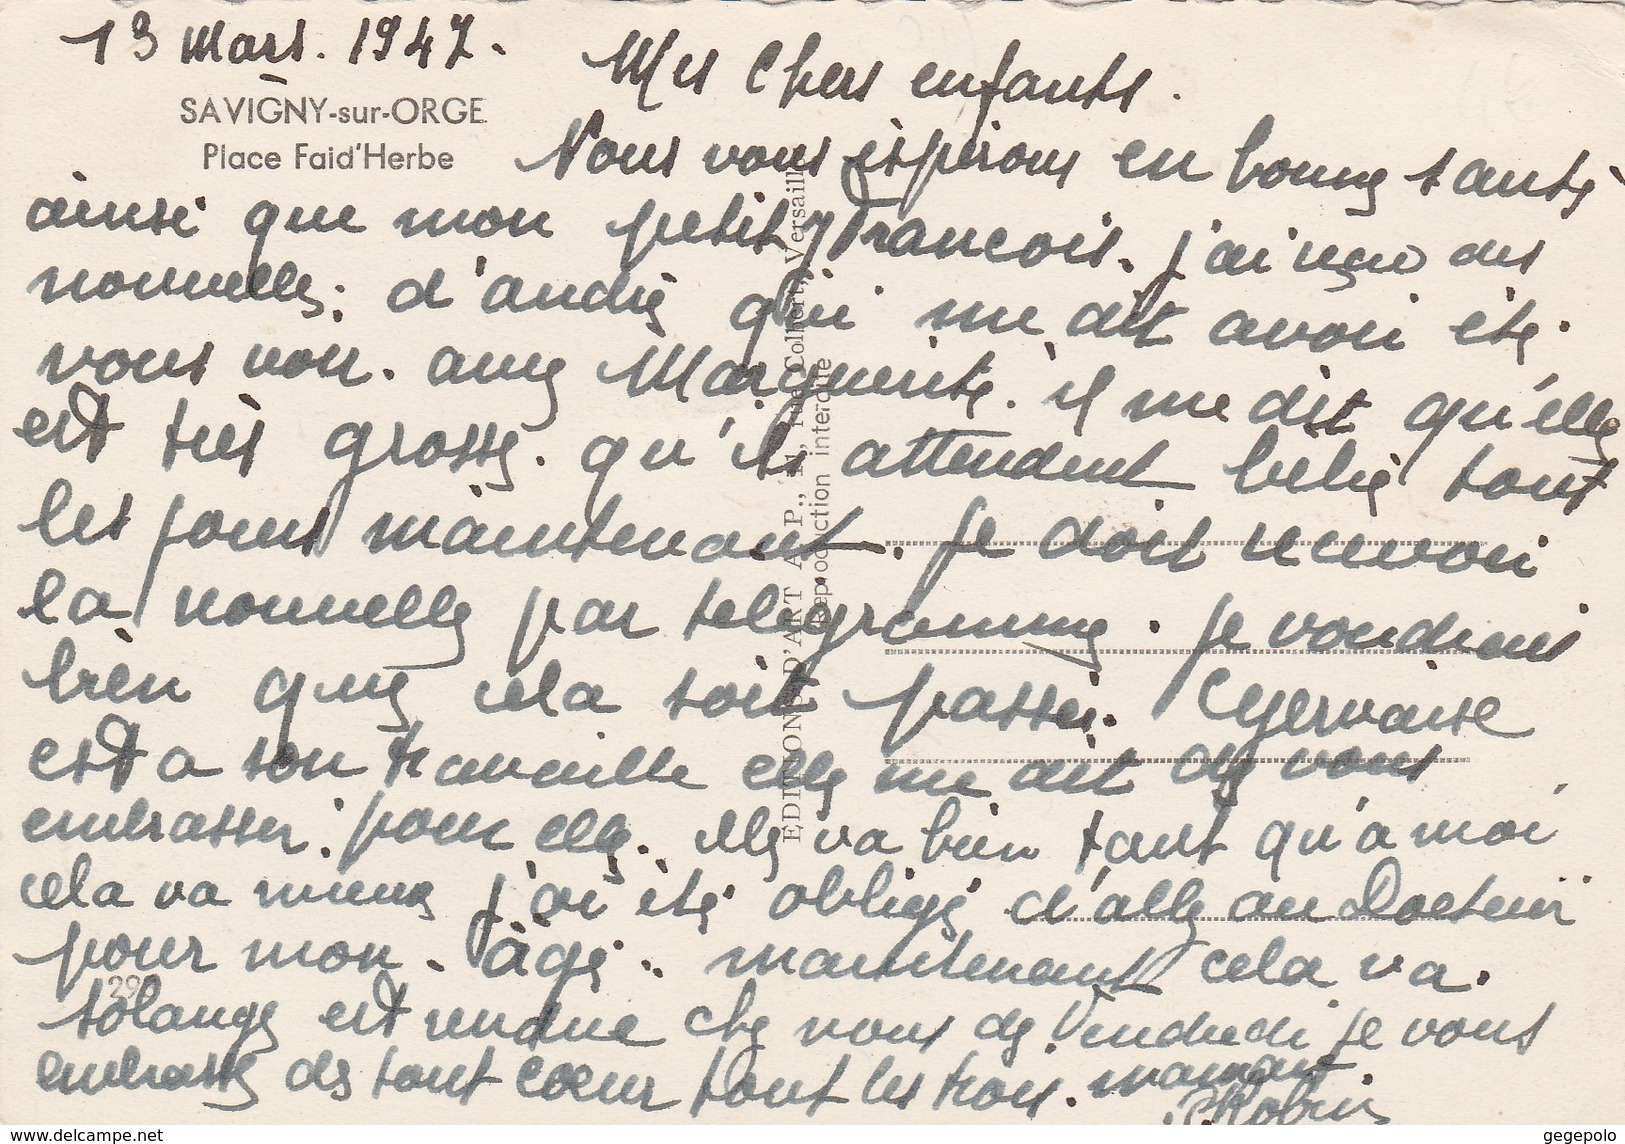 13 Mars. 1947.
SAVIGNY-sur-ORGE
Place Faid'Herbe
Mes Chers enfants.
Nous vous ésperons en bonne santé
ainsi que mon petit Francois. j'ai reçu des
nouvelles. d'andré qui me dit avoir été.
vous voir. avec Marguerite. il me dit qu'elle
est très grosse. qu'ils attendent bébé tout
les jours maintenant. je doit recevoir
la nouvelle par télégramme. je voudrais
bien que cela soit passer. Gervaise
est a son travaille elle me dit de vous
embrasser. pour elle. elle va bien tant qu'a moi
cela va mieux j'ai été obligé d'aller au Docteur
pour mon. âge.. maintenant cela va.
solange est vendue che nous de Vendredi je vous
embrasse de tout coeur tout les trois. maman.
Robin
EDITIONS D'ART A. P., 11, rue Colbert, Versailles
Reproduction interdite
29
gegepolo